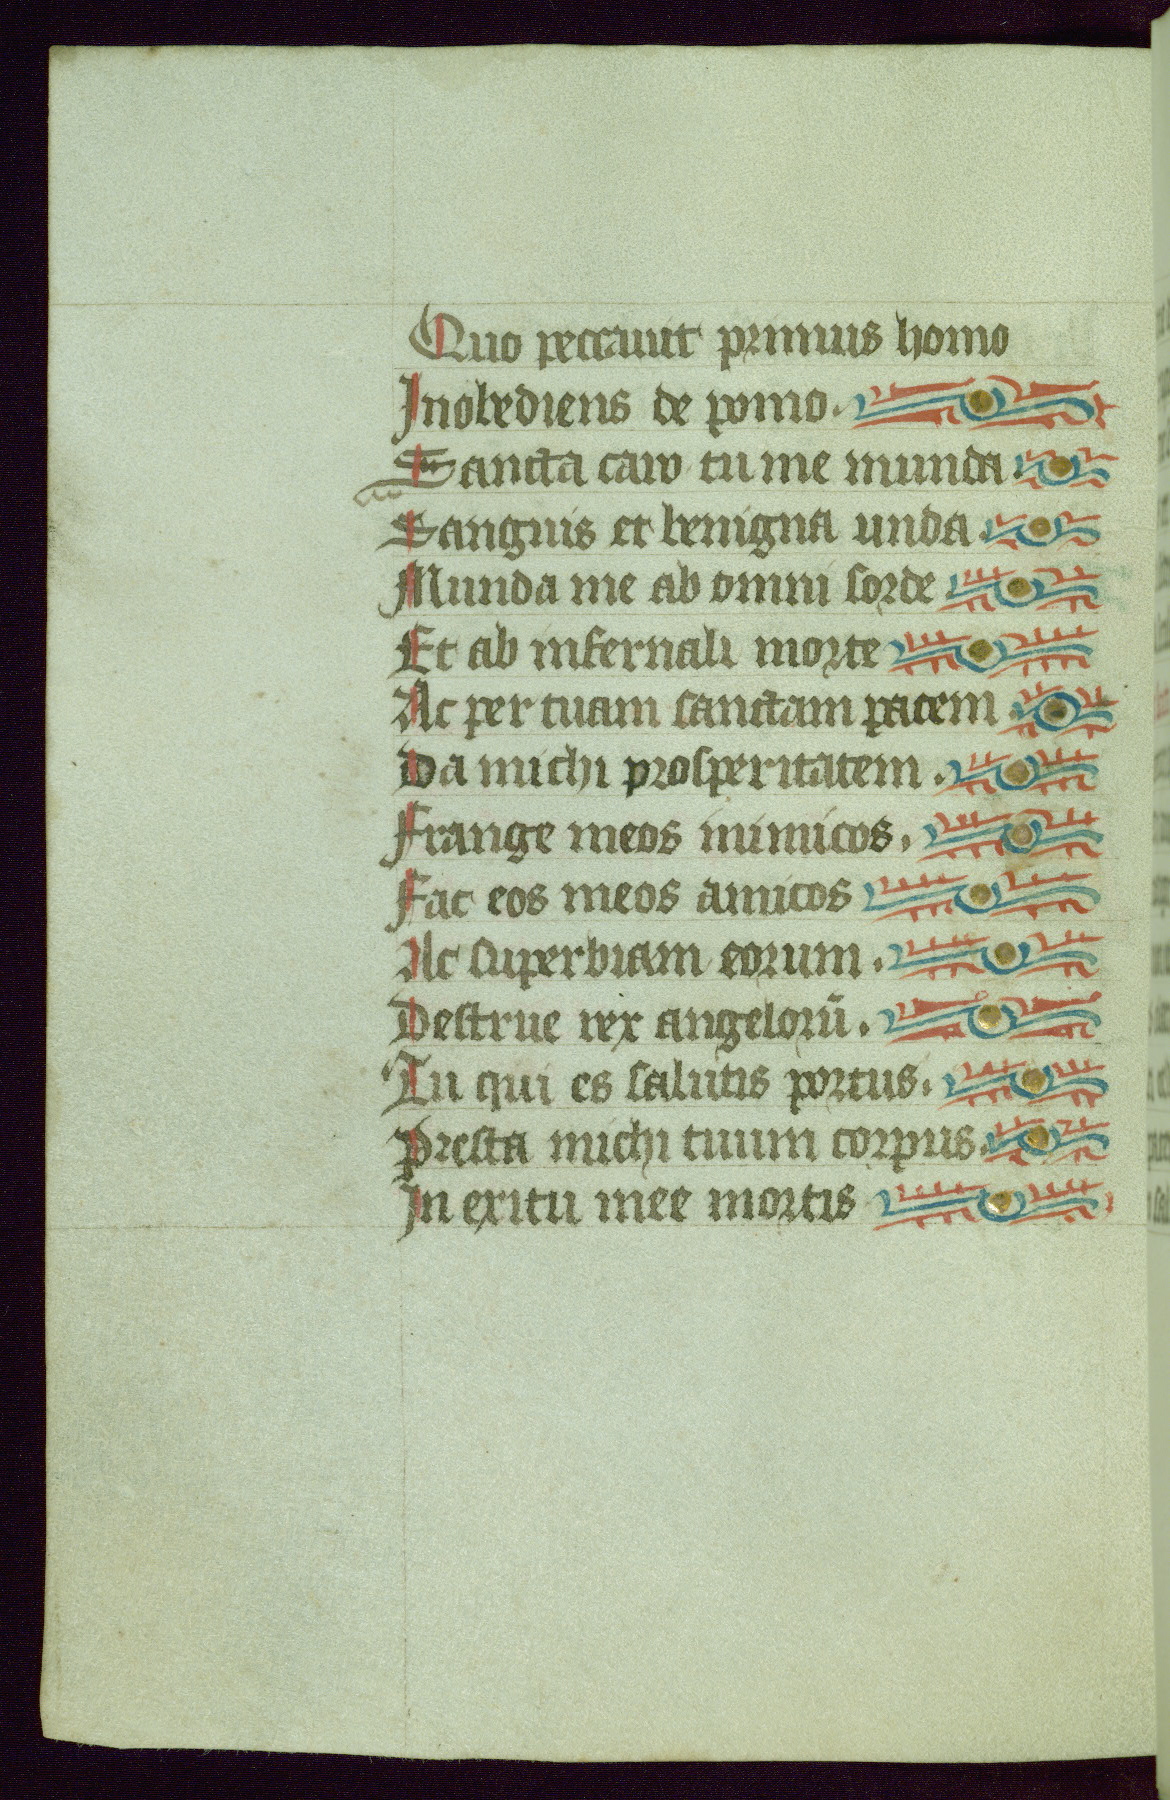 Quo peccauit primus homo
Inobediens de pomo.
Sancta caro tu me munda.
Sanguis et benigna unda.
Munda me ab omni sorde
Et ab infernali morte
Ac per tuam sanctam pacem.
Da michi prosperitatem.
Frange meos inimicos.
Fac eos meos amicos
Ac superbiam eorum.
Destrue rex angelorū.
Tu qui es salutis portus.
Presta michi tuum corpus.
In exitu mee mortis